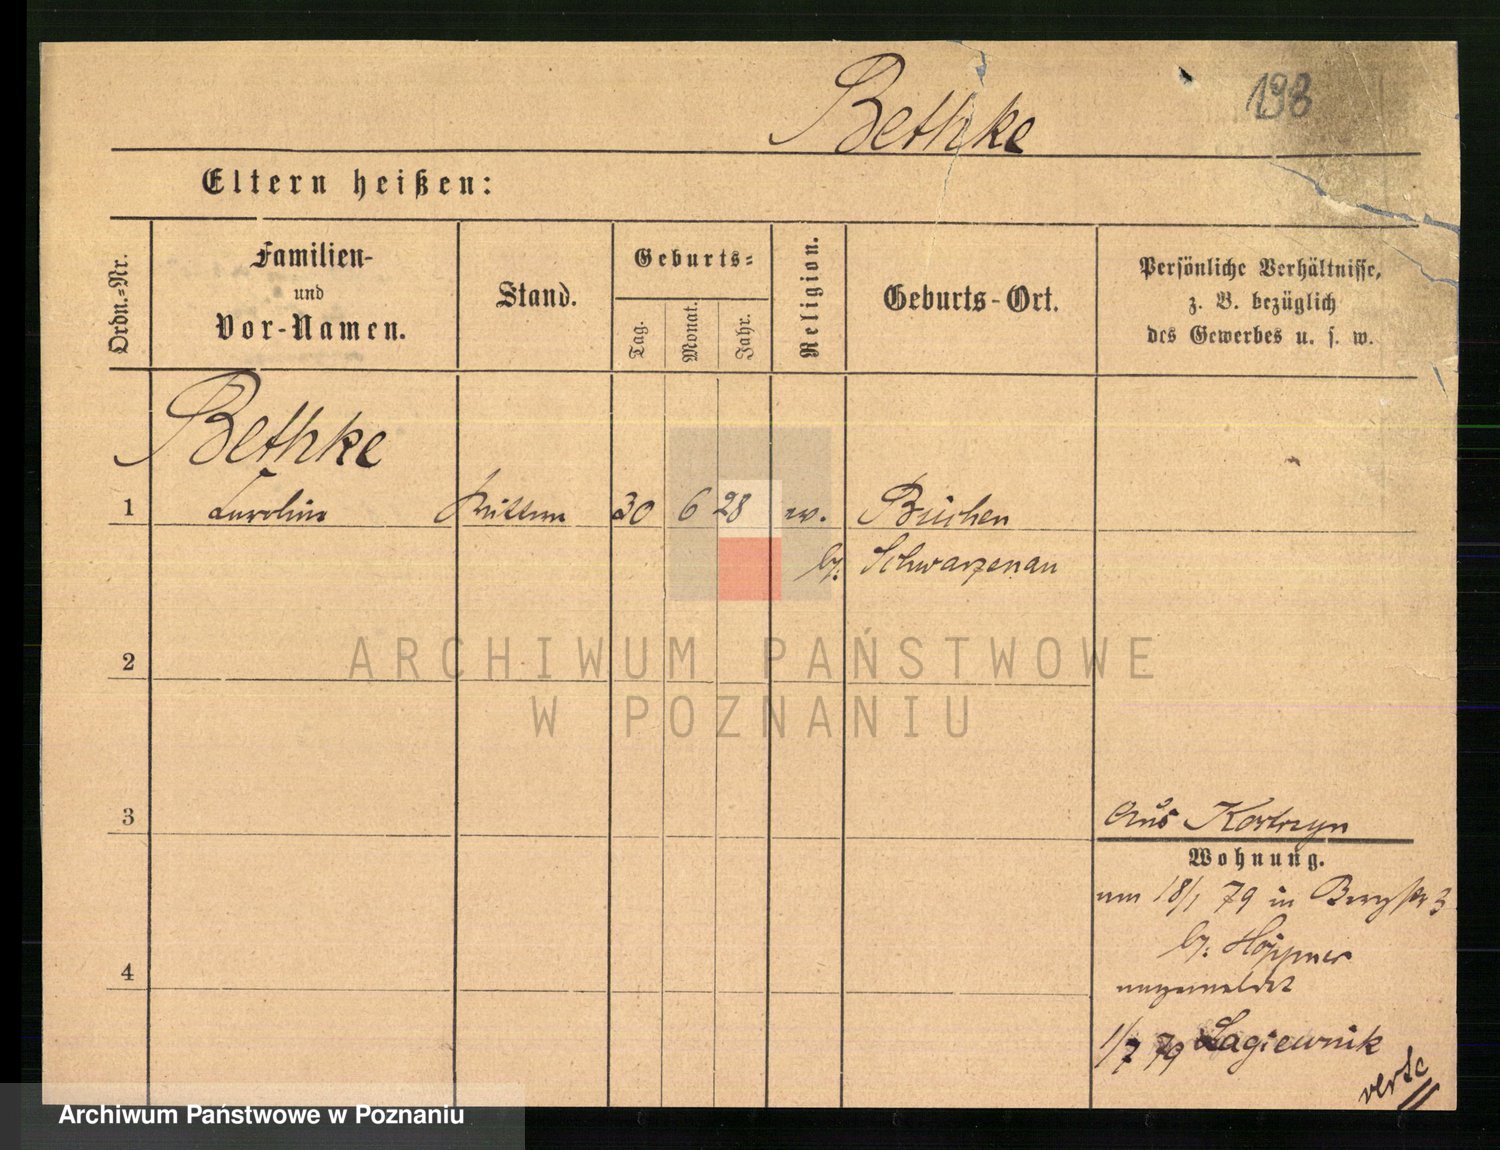 Bethke
198
Eltern heißen:
Ordn.-Nr.
Familien-
und
Vor-Namen.
Stand.
Geburts-
Tag.
Monat.
Jahr.
Religion.
Geburts-Ort.
Persönliche Verhältnisse,
z. B. bezüglich
des Gewerbes u. s. w.
Bethke
1 Caroline 30 6 28 ev. Büchen
b/. Schwarzenau
2
3
4
Aus Kostrzyn
Wohnung.
um 18/1 79 in Bergstr 3
b/. Höppner
angemeldet
1/7 79 Lagiewnik
verte
ARCHIWUM PAŃSTWOWE
W POZNANIU
Archiwum Państwowe w Poznaniu